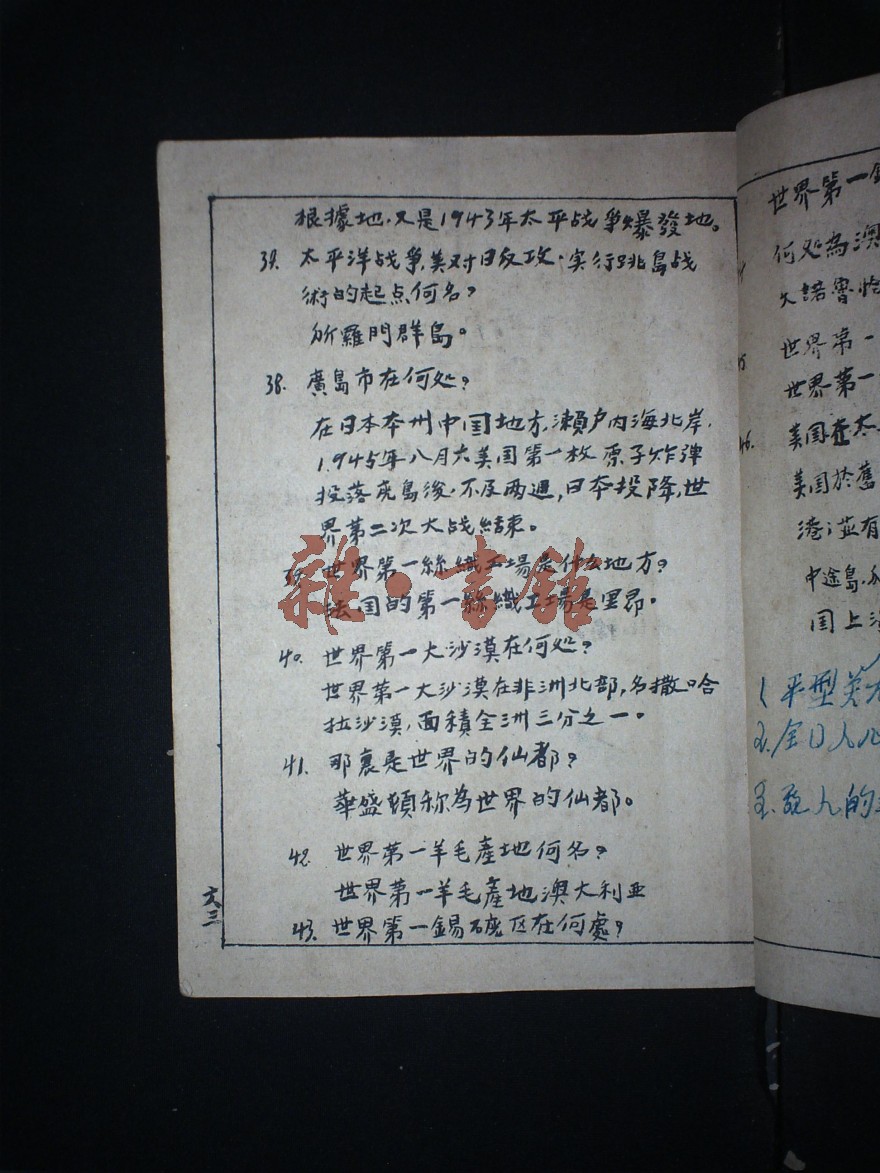 根據地，又是1943年太平战爭爆發地。
39. 太平洋战爭，美对日反攻，实行跳島战
術的起点何名？
所羅門群島。
38. 廣島市在何処？
在日本本州中国地方，瀬户内海北岸，
1945年八月六美国第一枚原子炸彈
投落廣島後，不及两週，日本投降，世
界第二次大战結束。
39. 世界第一絲織工場是什么地方？
法国的第一絲織工場是里昂。
40. 世界第一大沙漠在何処？
世界第一大沙漠在非洲北部，名撒哈
拉沙漠，面積全洲三分之一。
41. 那裏是世界的仙都？
華盛頓称為世界的仙都。
42. 世界第一羊毛產地何名？
世界第一羊毛產地澳大利亚
43. 世界第一錫礦区在何處？
六三
雜·書館
世界第一錫
何処為澳
大諾魯
世界第一
世界第一
46. 美国在太
美国於舊
港；並有
中途島，
国上
1 平型
2. 全日人
3. 人的